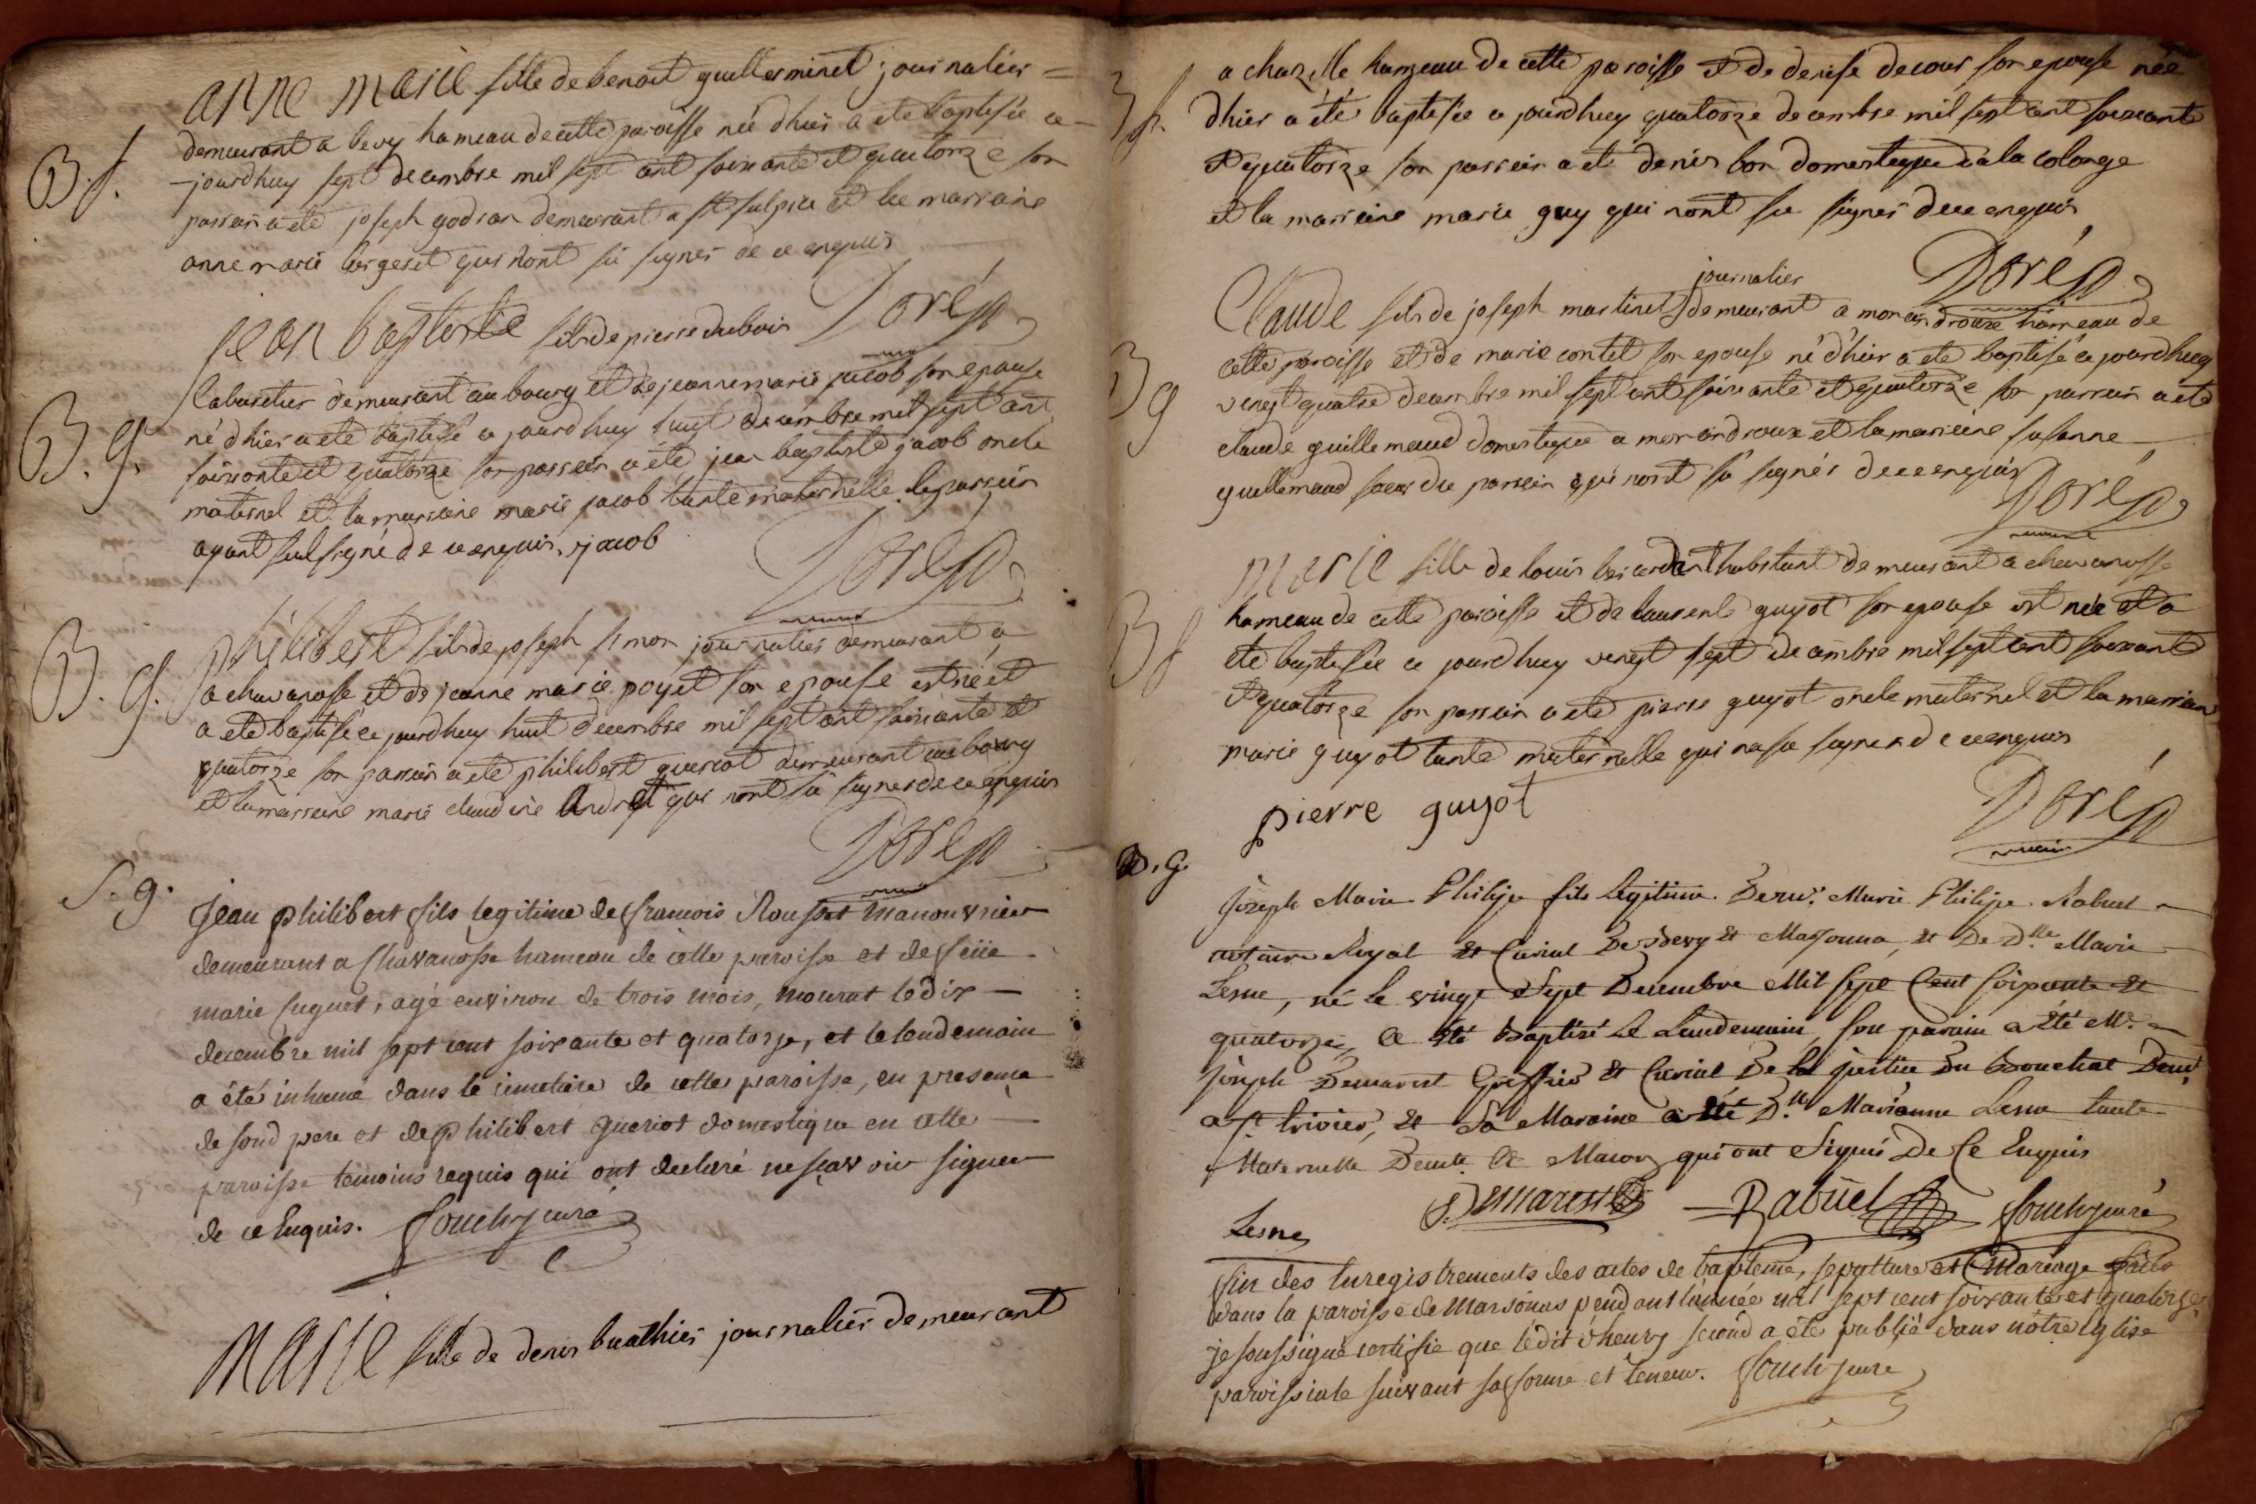 B. f.
anne marie fille de benoit guillerminet journalier
demeurant a bevy hameau de cette paroisse née dhier a ete baptisée ce
jourdhuy sept decembre mil sept cent soixante et quatorze son
parrain a ete joseph godran demeurant a st sulpice et la marraine
anne marie bergeret qui nont su signer de ce enquis
Doré
B. g.
jean baptiste fils de pierre dubois
Cabaretier demeurant au bourg et de jeanne marie jacob son epouse
né dhier a ete baptisé ce jourdhuy huit decembre mil sept cent
soixante et quatorze son parrain a été jean baptiste jacob oncle
maternel et la marraine marie jacob tante maternelle le parrain
ayant seul signé de ce enquis. jacob
Doré
B. g.
philibert fils de joseph simon journalier demeurant a
a chavanosse et de jeanne marie poyet son epouse est né et
a ete baptisé ce jourdhuy huit decembre mil sept cent soixante et
quatorze son parrain a ete philibert gueriot demeurant au bourg
et la marraine marie claudine andret qui nont su signer de ce enquis
Doré
S. g.
Jean philibert fils legitime de francois Rousset manouvrier
demeurant a Chavanosse hameau de cette paroisse et de feüe
marie suguet, agé environ de trois mois, mourut le dix
decembre mil sept cent soixante et quatorze, et le lendemain
a été inhumé dans le cimetiere de cette paroisse, en presence
de sond pere et de philibert gueriot domestique en cette
paroisse temoins requis qui ont declaré ne sçavoir signer
de ce Enquis. fouch curé
marie fille de denis buathier journalier demeurant
B f.
a chazelle hameau de cette paroisse et de denise decour son epouse née
dhier a été baptisée ce jourdhuy quatorze decembre mil sept cent soixante
et quatorze son parrain a ete denis bon domestique a la colonge
et la marraine marie guy qui nont su signer de ce enquis
Doré
B g
journalier
Claude fils de joseph martinet demeurant a moncindroux hameau de
cette paroisse et de marie contet son epouse né d'hier a ete baptisé ce jourdhuy
vingt quatre decembre mil sept cent soixante et quatorze son parrain a ete
claude guillemaud domestique a moncindroux et la marraine susanne
guillemaud soeur du parrain qui nont su signér de ce enquis
Doré
B f
marie fille de louis habitant demeurant a chavanosse
hameau de cette paroisse et de laurence guyot son epouse est née et a
ete baptisée ce jourdhuy vingt sept decembre mil sept cent soixante
et quatorze son parrain a ete pierre guyot oncle maternel et la marraine
marie guyot tante maternelle qui na su signer de ce enquis
pierre guyot
Doré
B. g.
Joseph Marie Philipe fils Legitime De Marie Philipe Rabuel
notaire Royal et Curial De Bevy et Massonna, et De Dlle Marie
Lesne, né Le vingt Sept Decembre Mil Sept Cent soixante et
quatorze, a été Baptisé Le Lendemain, son parain a été Mr.
Joseph Demarest Greffier et Curial De la justice Du Bouchat Demt
a St. trivier, et Sa Maraine a été Dlle Marianne Lesne tante
Maternelle Demte a Macon qui ont Signés De Ce Enquis
Lesne
Demarest
Rabuel
fouch curé
fin des Enregistrements des actes de baptême, sepulture et Mariage faits
dans la paroisse de Marsonas pendant lannée mil sept cent soixante et quatorze,
je soussigné certifie que lédit d'henry second a été publié dans nôtre eglise
paroissiale suivant sa forme et teneur. fouch curé